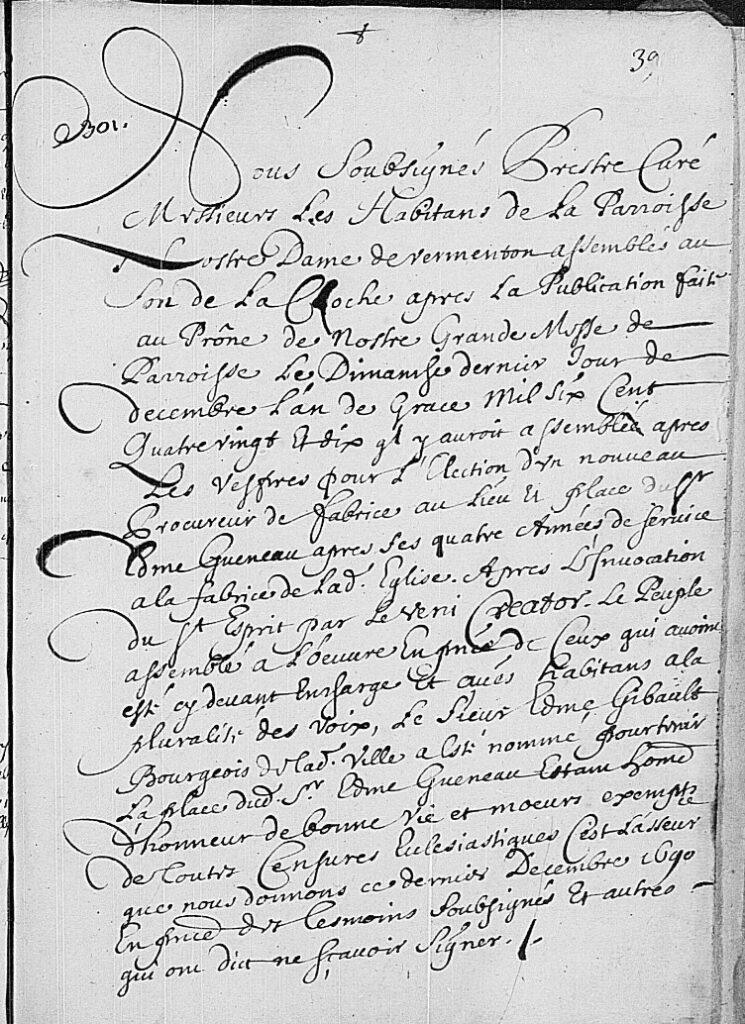 39
301.
Nous Soubsignés Prestre Curé
Messieurs Les Habitans de La Parroisse
Nostre Dame de vermenton assemblés au
Son de La Cloche apres La Publication faite
au Prône de Nostre Grande Messe de
Parroisse Le Dimanche dernier Jour de
decembre L'an de Grace Mil Six Cent
Quatre vingt Et dix ql y auroit assemblée apres
Les Vespres pour L'Election d'vn nouveau
Procureur de fabrice au Lieu Et place du Sr
Edme Gueneau apres ses quatre Années de service
a la fabrice de Lad. Eglise. Apres L'Invocation
du St Esprit par Le Veni Creator. Le Peuple
assemblé a L'oeuvre En pnce de Ceux qui avoint
esté cy devant En charge Et aués habitans a la
pluralité des Voix, Le Sieur Edme Gibault
Bourgeois de Lad. Ville a Esté nommé pour tenir
La place dud. Sr. Edme Gueneau Estant home
d'honneur de bonne Vie et moeurs exempte
de toutes Censures Ecclesiastiques C'est L'asseur
que nous donnons ce dernier Decembre 1690
En pnce des tesmoins Soubsignés Et autres
qui ont dict ne sçavoir Signer.